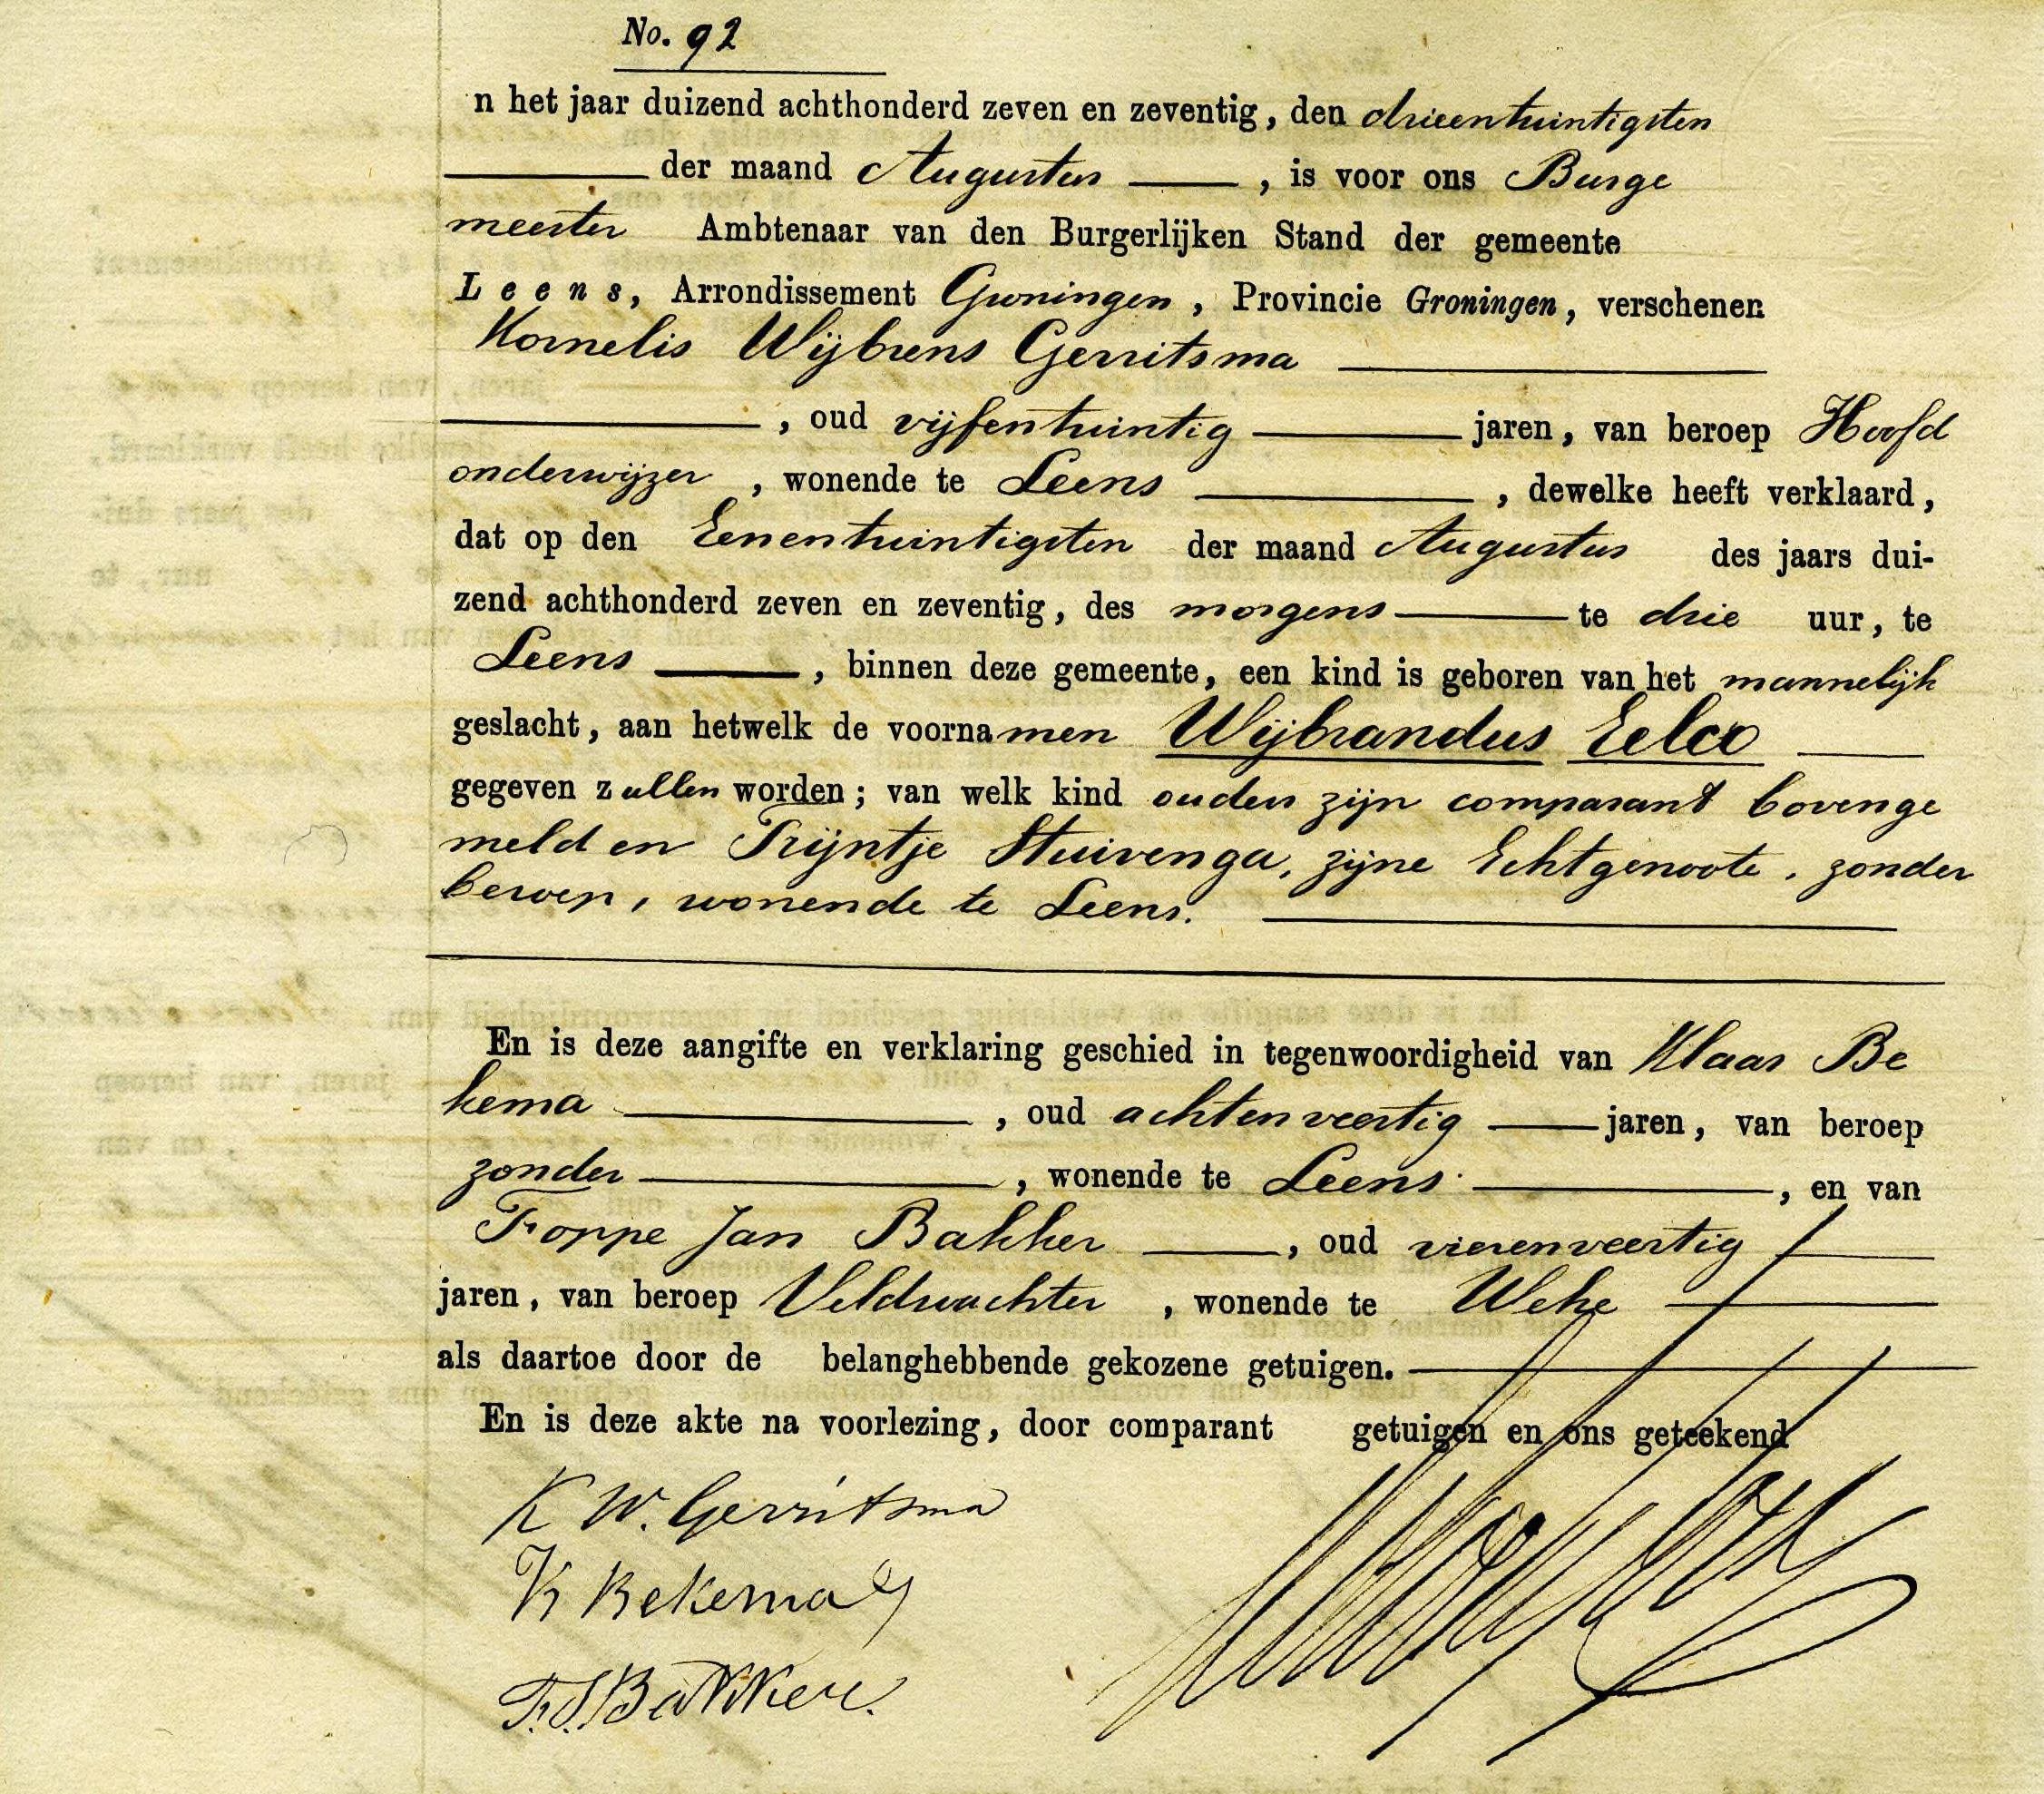 No. 92
n het jaar duizend achthonderd zeven en zeventig, den drieentwintigsten
der maand Augustus, is voor ons Burge
meester Ambtenaar van den Burgerlijken Stand der gemeente
Leens, Arrondissement Groningen, Provincie Groningen, verschenen
Kornelis Wijbrens Gerritsma
, oud vijfentwintig jaren, van beroep Hoofd
onderwijzer, wonende te Leens, dewelke heeft verklaard,
dat op den Eenentwintigsten der maand Augustus des jaars dui-
zend achthonderd zeven en zeventig, des morgens te drie uur, te
Leens, binnen deze gemeente, een kind is geboren van het mannelijk
geslacht, aan hetwelk de voornamen Wijbrandus Eelco
gegeven zullen worden; van welk kind ouders zijn comparant bovenge
meld en Trijntje Stuivenga, zijne Echtgenoote, zonder
beroep, wonende te Leens.
En is deze aangifte en verklaring geschied in tegenwoordigheid van Klaas Be
kema, oud achtenveertig jaren, van beroep
zonder, wonende te Leens, en van
Foppe Jan Bakker, oud vierenveertig
jaren, van beroep Veldwachter, wonende te Wehe
als daartoe door de belanghebbende gekozene getuigen.
En is deze akte na voorlezing, door comparant getuigen en ons geteekend
K W. Gerritsma
K Bekema
F. J. Bakker.